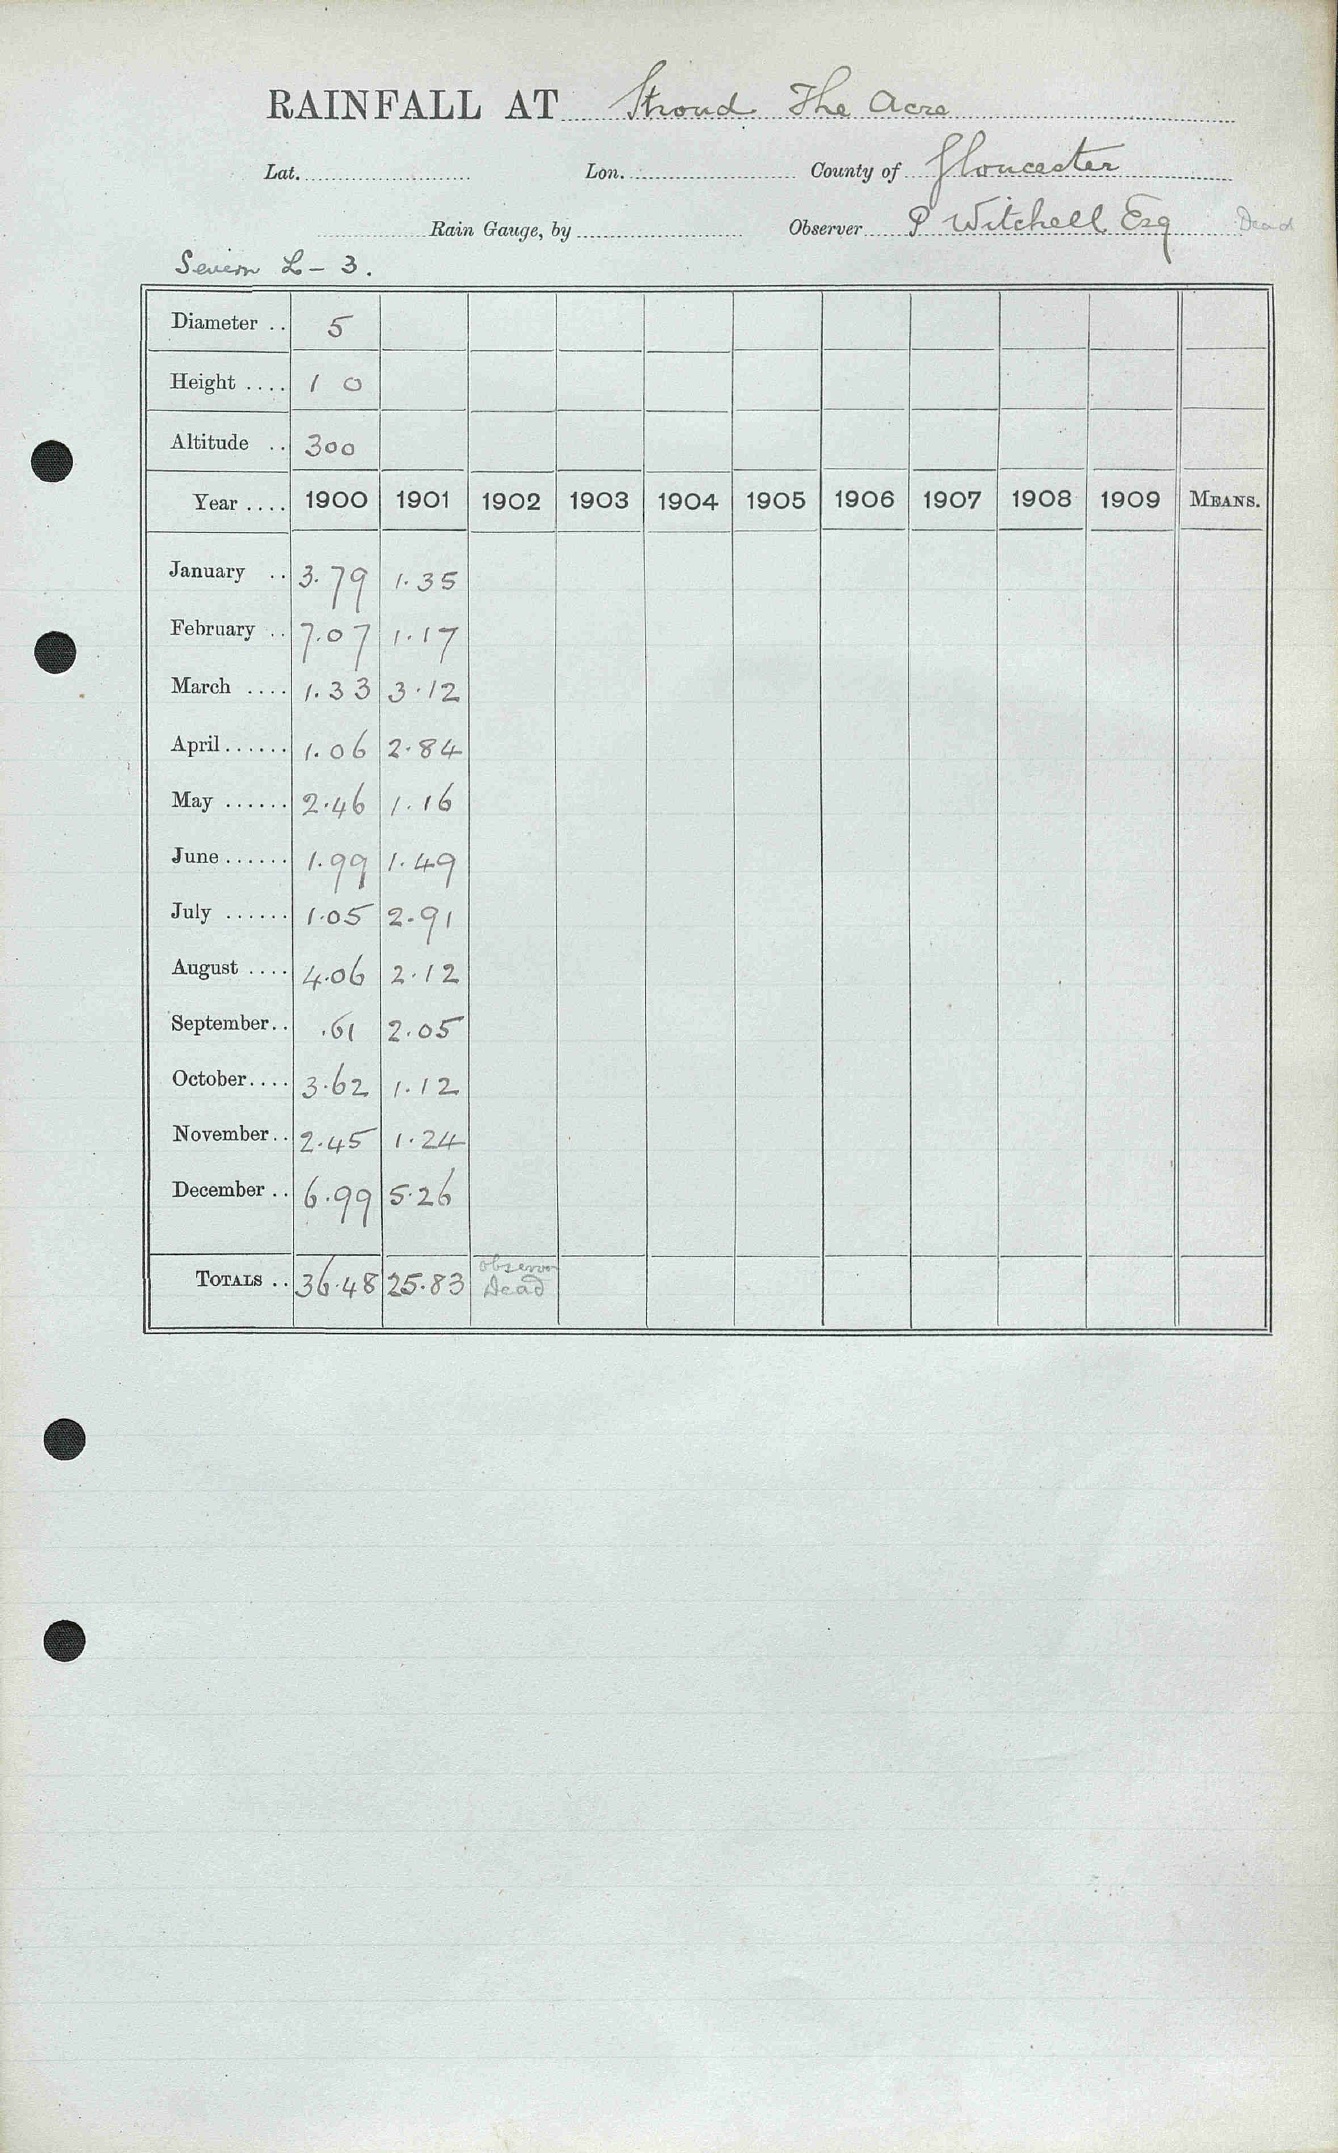 RAINFALL AT Stroud The Acre
Lat. Lon. County of Gloucester
Rain Gauge, by Observer P Witchell Esq Dead
Severn L - 3.
Diameter .. 5
Height .... 1 0
Altitude .. 300
Year .... 1900 1901 1902 1903 1904 1905 1906 1907 1908 1909 MEANS.
January .. 3.79 1.35
February .. 7.07 1.17
March .... 1.33 3.12
April ...... 1.06 2.84
May ...... 2.46 1.16
June ...... 1.99 1.49
July ...... 1.05 2.91
August .... 4.06 2.12
September.. .61 2.05
October.... 3.62 1.12
November.. 2.45 1.24
December .. 6.99 5.26
TOTALS .. 36.48 25.83 observer Dead